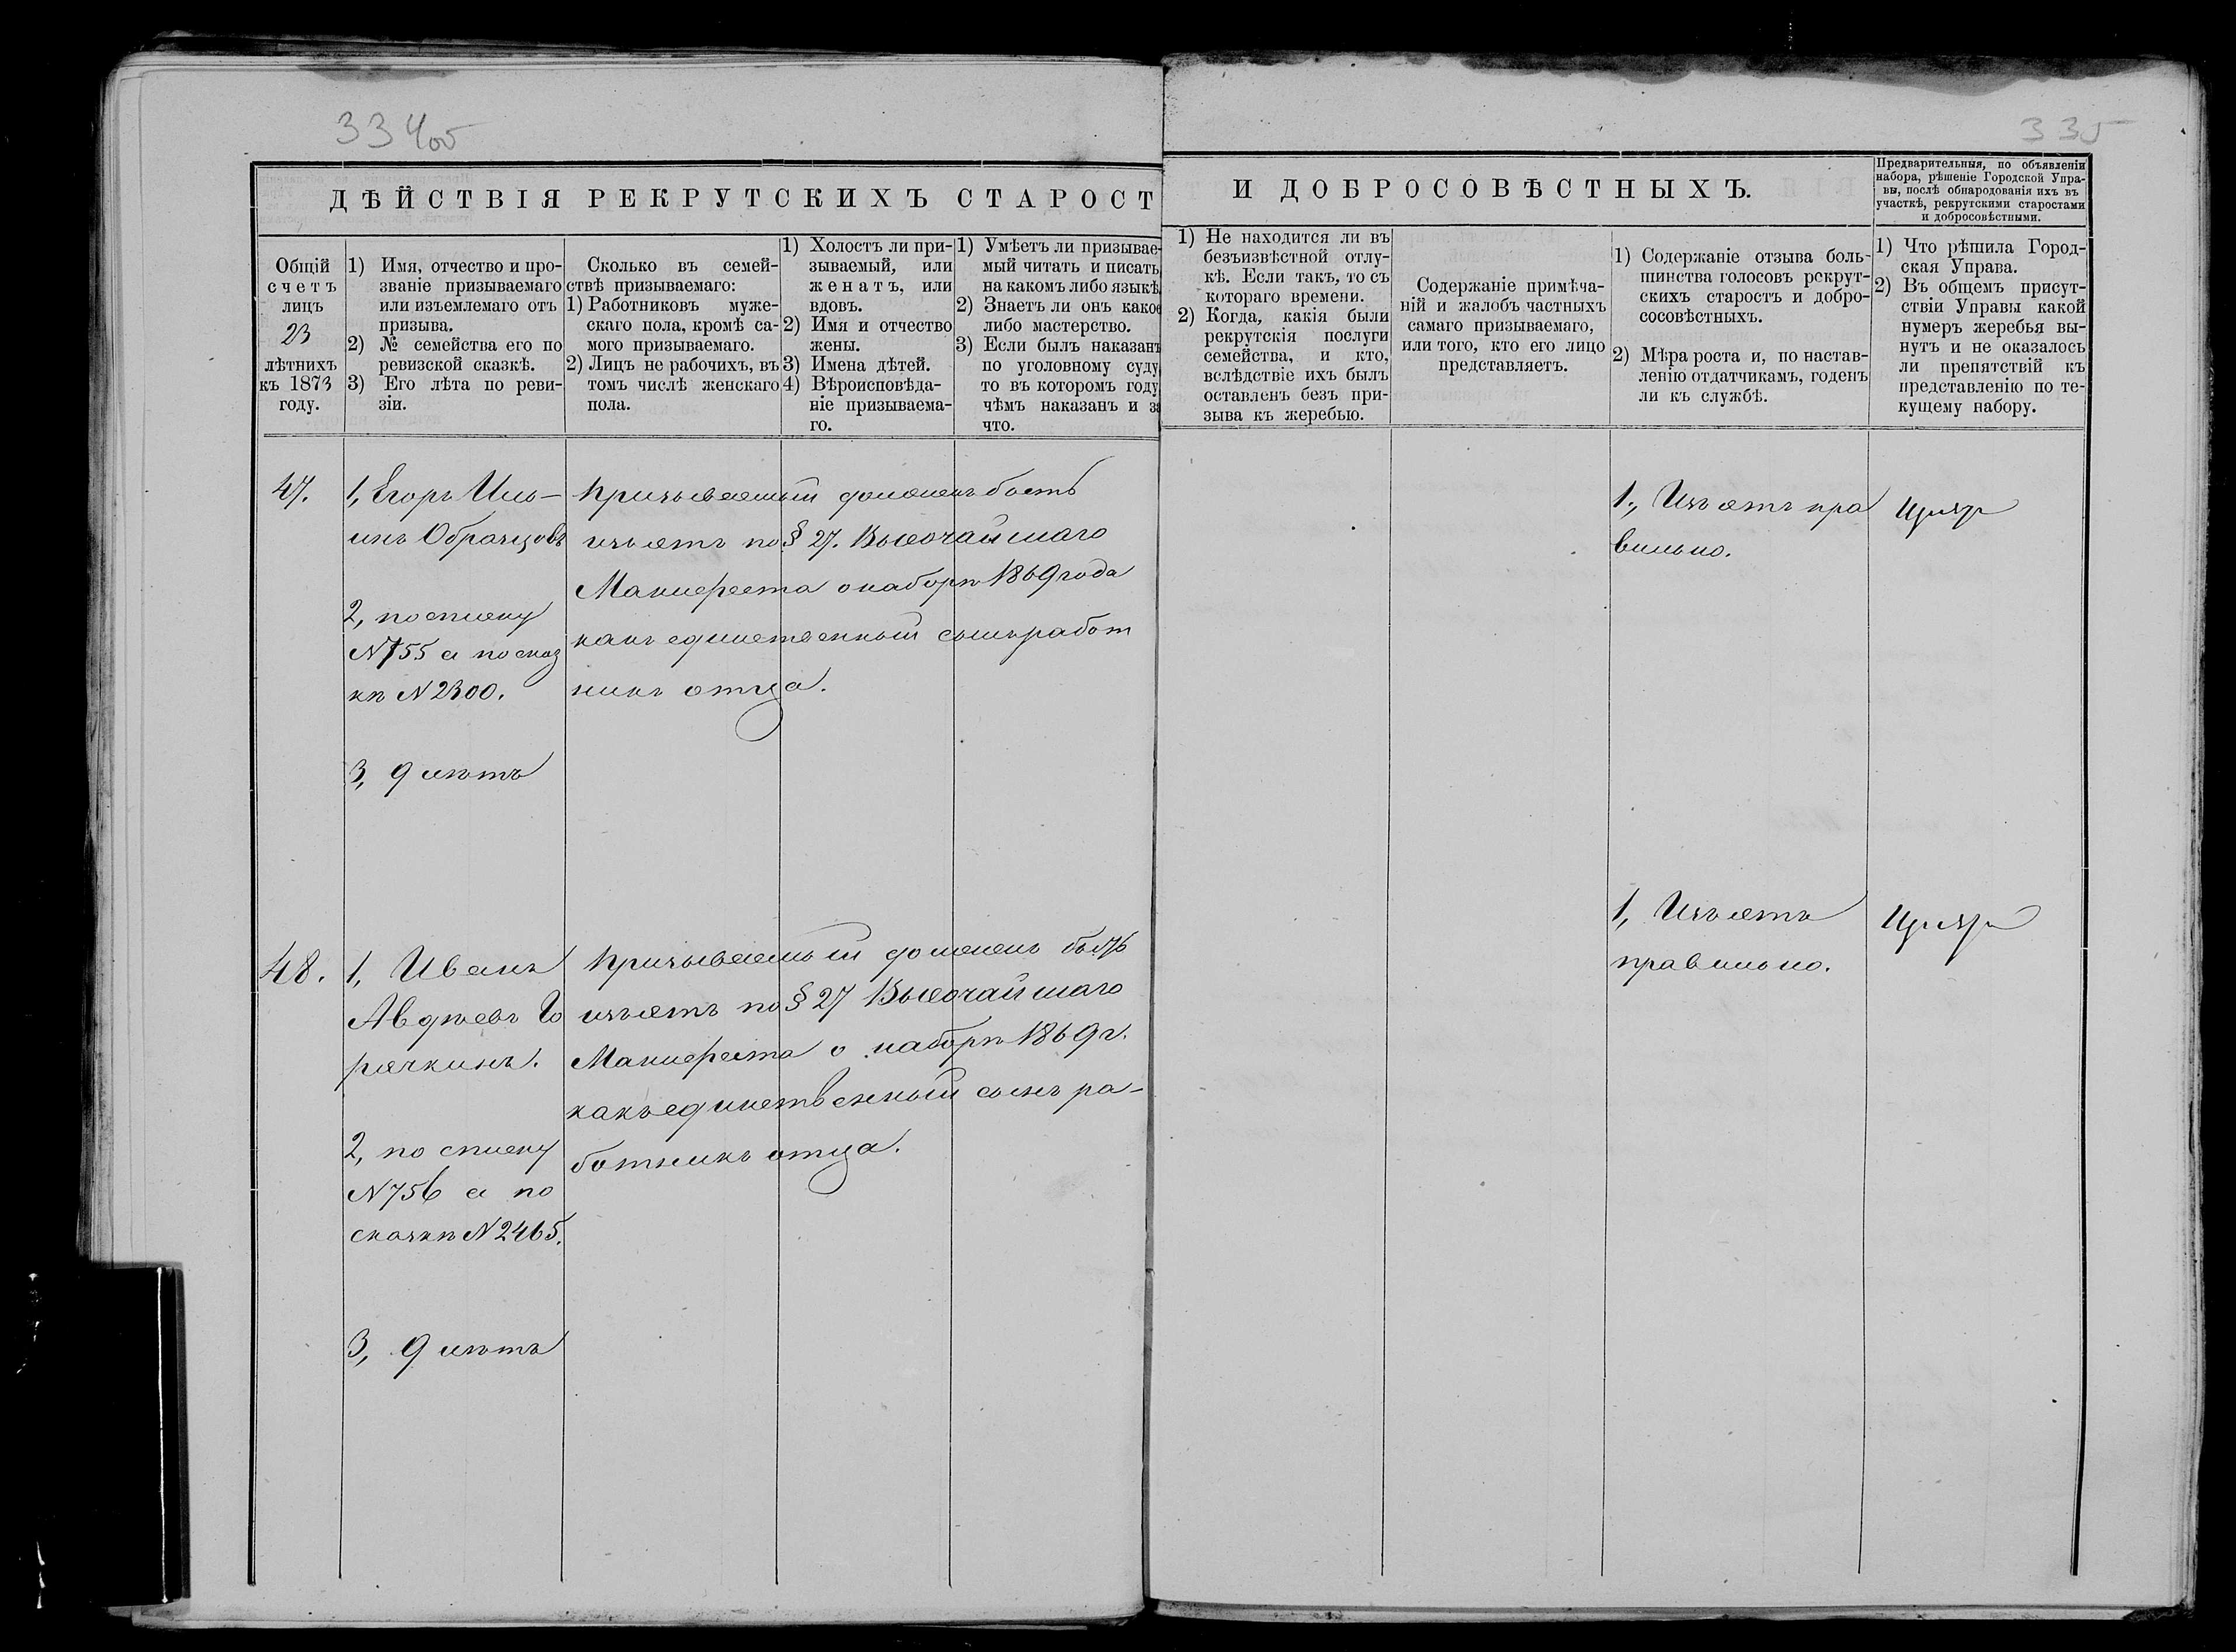 334об
335
ДѢЙСТВІЯ РЕКРУТСКИХЪ СТАРОСТ
И ДОБРОСОВѢСТНЫХЪ.
Предварительныя, по объявленіи
набора, рѣшеніе Городской Упра-
вы, послѣ обнародованія ихъ въ
участкѣ, рекрутскими старостами
и добросовѣстными.
Общій
счетъ
лицъ
23
лѣтнихъ
къ 1873
году.
1) Имя, отчество и про-
званіе призываемаго
или изъемлемаго отъ
призыва.
2) № семейства его по
ревизской сказкѣ.
3) Его лѣта по реви-
зіи.
Сколько въ семей-
ствѣ призываемаго:
1) Работниковъ муже-
скаго пола, кромѣ са-
мого призываемаго.
2) Лицъ не рабочихъ, въ
томъ числѣ женскаго
пола.
1) Холостъ ли при-
зываемый, или
женатъ, или
вдовъ.
2) Имя и отчество
жены.
3) Имена дѣтей.
4) Вѣроисповѣда-
ніе призываема-
го.
1) Умѣетъ ли призывае-
мый читать и писать,
на какомъ либо языкѣ.
2) Знаетъ ли онъ какое
либо мастерство.
3) Если былъ наказанъ
по уголовному суду,
то въ которомъ году,
чѣмъ наказанъ и за
что.
1) Не находится ли въ
безъизвѣстной отлу-
кѣ. Если такъ, то съ
котораго времени.
2) Когда, какія были
рекрутскія послуги
семейства, и кто,
вслѣдствіе ихъ былъ
оставленъ безъ при-
зыва къ жеребью.
Содержаніе примѣча-
ній и жалобъ частныхъ
самаго призываемаго,
или того, кто его лицо
представляетъ.
1) Содержаніе отзыва боль-
шинства голосовъ рекрут-
скихъ старостъ и добро-
сосовѣстныхъ.
2) Мѣра роста и, по настав-
ленію отдатчикамъ, годенъ
ли къ службѣ.
1) Что рѣшила Город-
ская Управа.
2) Въ общемъ присут-
ствіи Управы какой
нумеръ жеребья вы-
нутъ и не оказалось
ли препятствій къ
представленію по те-
кущему набору.
47.
1, Егоръ Иль-
инъ Образцовъ
2, по списку
N755 а по сказ
кѣ N2300.
3, 9 лѣтъ
Призываемый долженъ быть
изъятъ по § 27. Высочайшаго
Манифеста о наборѣ 1869 года
какъ единственный сынъ работ
никъ отца.
1., Изъятъ пра
вильно.
48.
1, Иванъ
Авдѣевъ Го
рячкинъ.
2, по списку
N756 а по
сказкѣ N2465.
3, 9 лѣтъ
Призываемый долженъ быть
изъятъ по § 27 Высочайшаго
Манифеста о наборѣ 1869 г.
какъ единственный сынъ ра-
ботникъ отца.
1, Изъятъ
правильно.